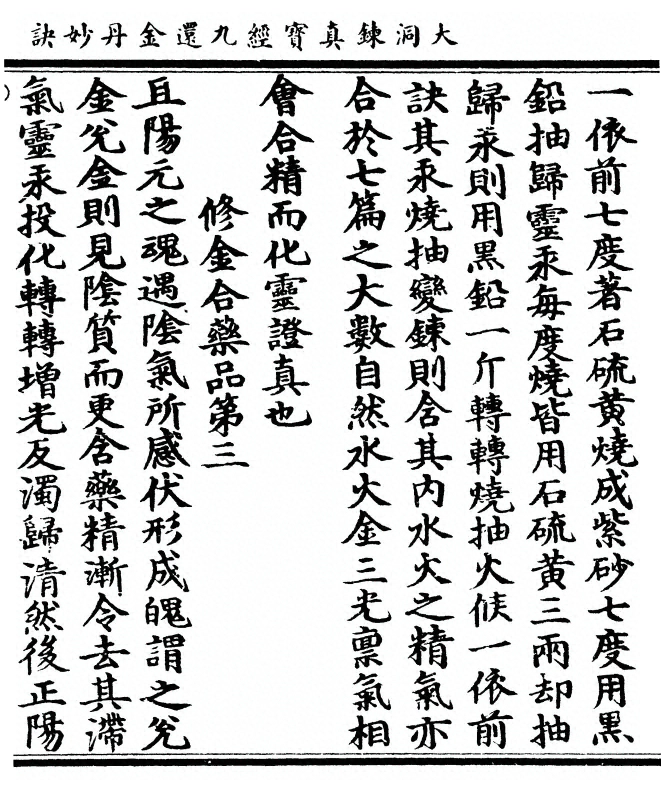 大洞鍊真寳經九還金丹妙訣
一依前七度著石硫黃燒成紫砂七度用黑
鉛抽歸靈汞每度燒皆用石硫黃三兩却抽
歸汞則用黑鉛一斤轉轉燒抽火候一依前
訣其汞燒抽變鍊則含其内水火之精氣亦
合於七篇之大數自然水火金三光禀氣相
會合精而化靈證真也
修金合藥品第三
且陽元之魂遇陰氣所感伏形成魄謂之兊
金兊金則見陰質而更含藥精漸令去其滯
氣靈汞投化轉轉增光反濁歸清然後正陽